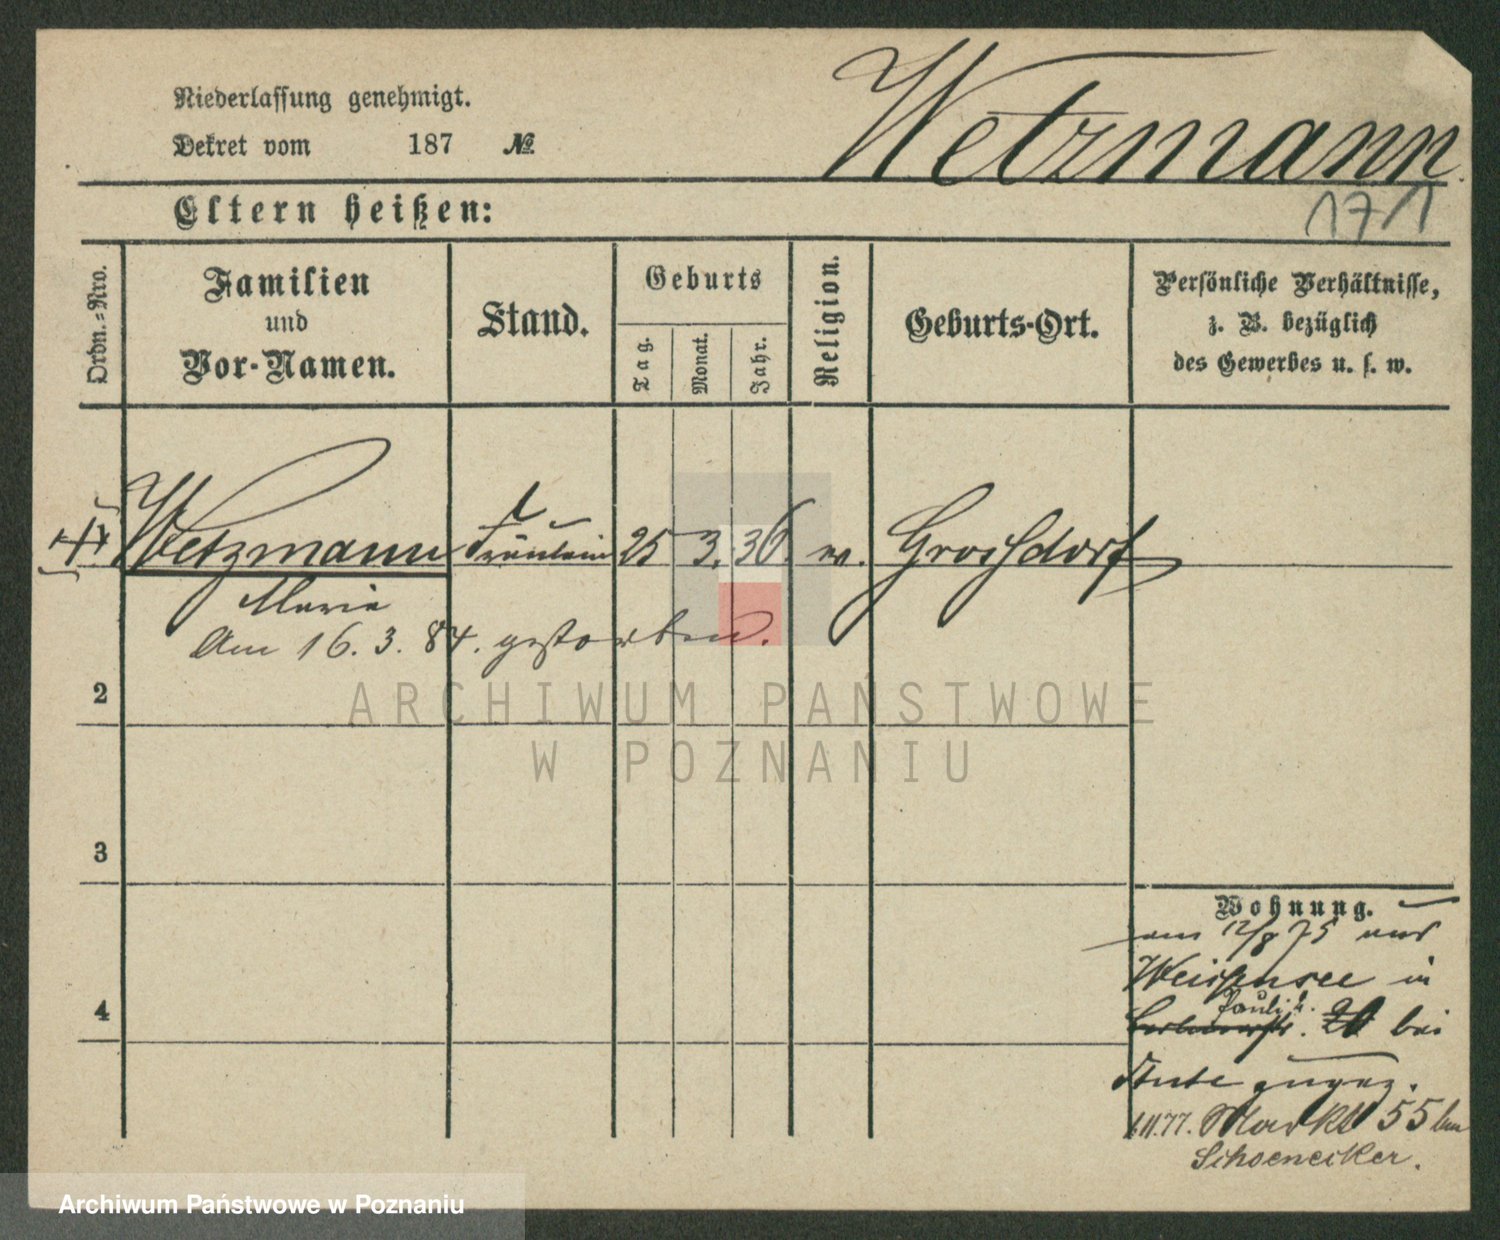 Niederlassung genehmigt.
Dekret vom 187 №
Wetzmann.
171
Eltern heißen:
Ordn.-Nro.
Familien
und
Vor-Namen.
Stand.
Geburts
Tag.
Monat.
Jahr.
Religion.
Geburts-Ort.
Persönliche Verhältnisse,
z. B. bezüglich
des Gewerbes u. s. w.
Wetzmann Fräulein 25 3. 36.
Maria
Am 16. 3. 84. gestorben.
2
ARCHIWUM PAŃSTWOWE
W POZNANIU
3
Wohnung.
am 12/8 75 aus
Weissensee in
4
Paulik. bei
zugez.
77. Markt 55 bei
Schoenecker.
Archiwum Państwowe w Poznaniu